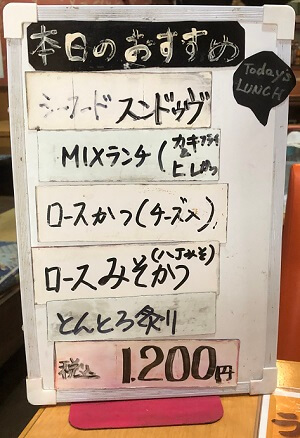 本日のおすすめ
Today's
LUNCH
シーフード スンドゥヴ
MIXランチ(カキフライ
&
ヒレかつ
ロースかつ(チーズ入)
ロースみそかつ(八丁みそ)
とんとろ炙り
税込 1,200円